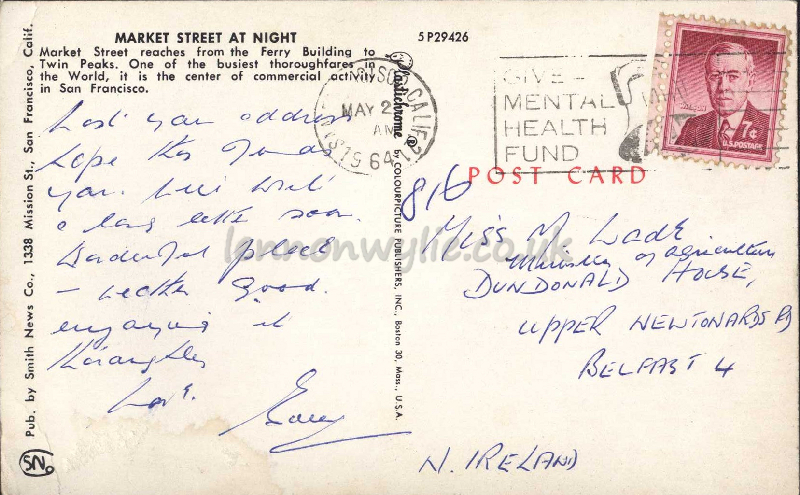 MARKET STREET AT NIGHT
5P29426
Market Street reaches from the Ferry Building to
Twin Peaks. One of the busiest thoroughfares in
the World, it is the center of commercial activity
in San Francisco.
Lost your address
hope this finds
you. Will write
a long letter soon.
Wonderful place
- weather good.
enjoying it
thoroughly
Love.
Pub. by Smith News Co., 1338 Mission St., San Francisco, Calif.
SN
Plastichrome ® by COLOURPICTURE PUBLISHERS, INC., Boston 30, Mass., U.S.A.
CALIF.
MAY 2
AM
1964
GIVE -
MENTAL
HEALTH
FUND
7¢
U.S. POSTAGE
POST CARD
816
Miss M. Wade
Ministry of Agriculture
DUNDONALD HOUSE,
UPPER NEWTONARDS RD
BELFAST 4
N. IRELAND
lennonwylie.co.uk